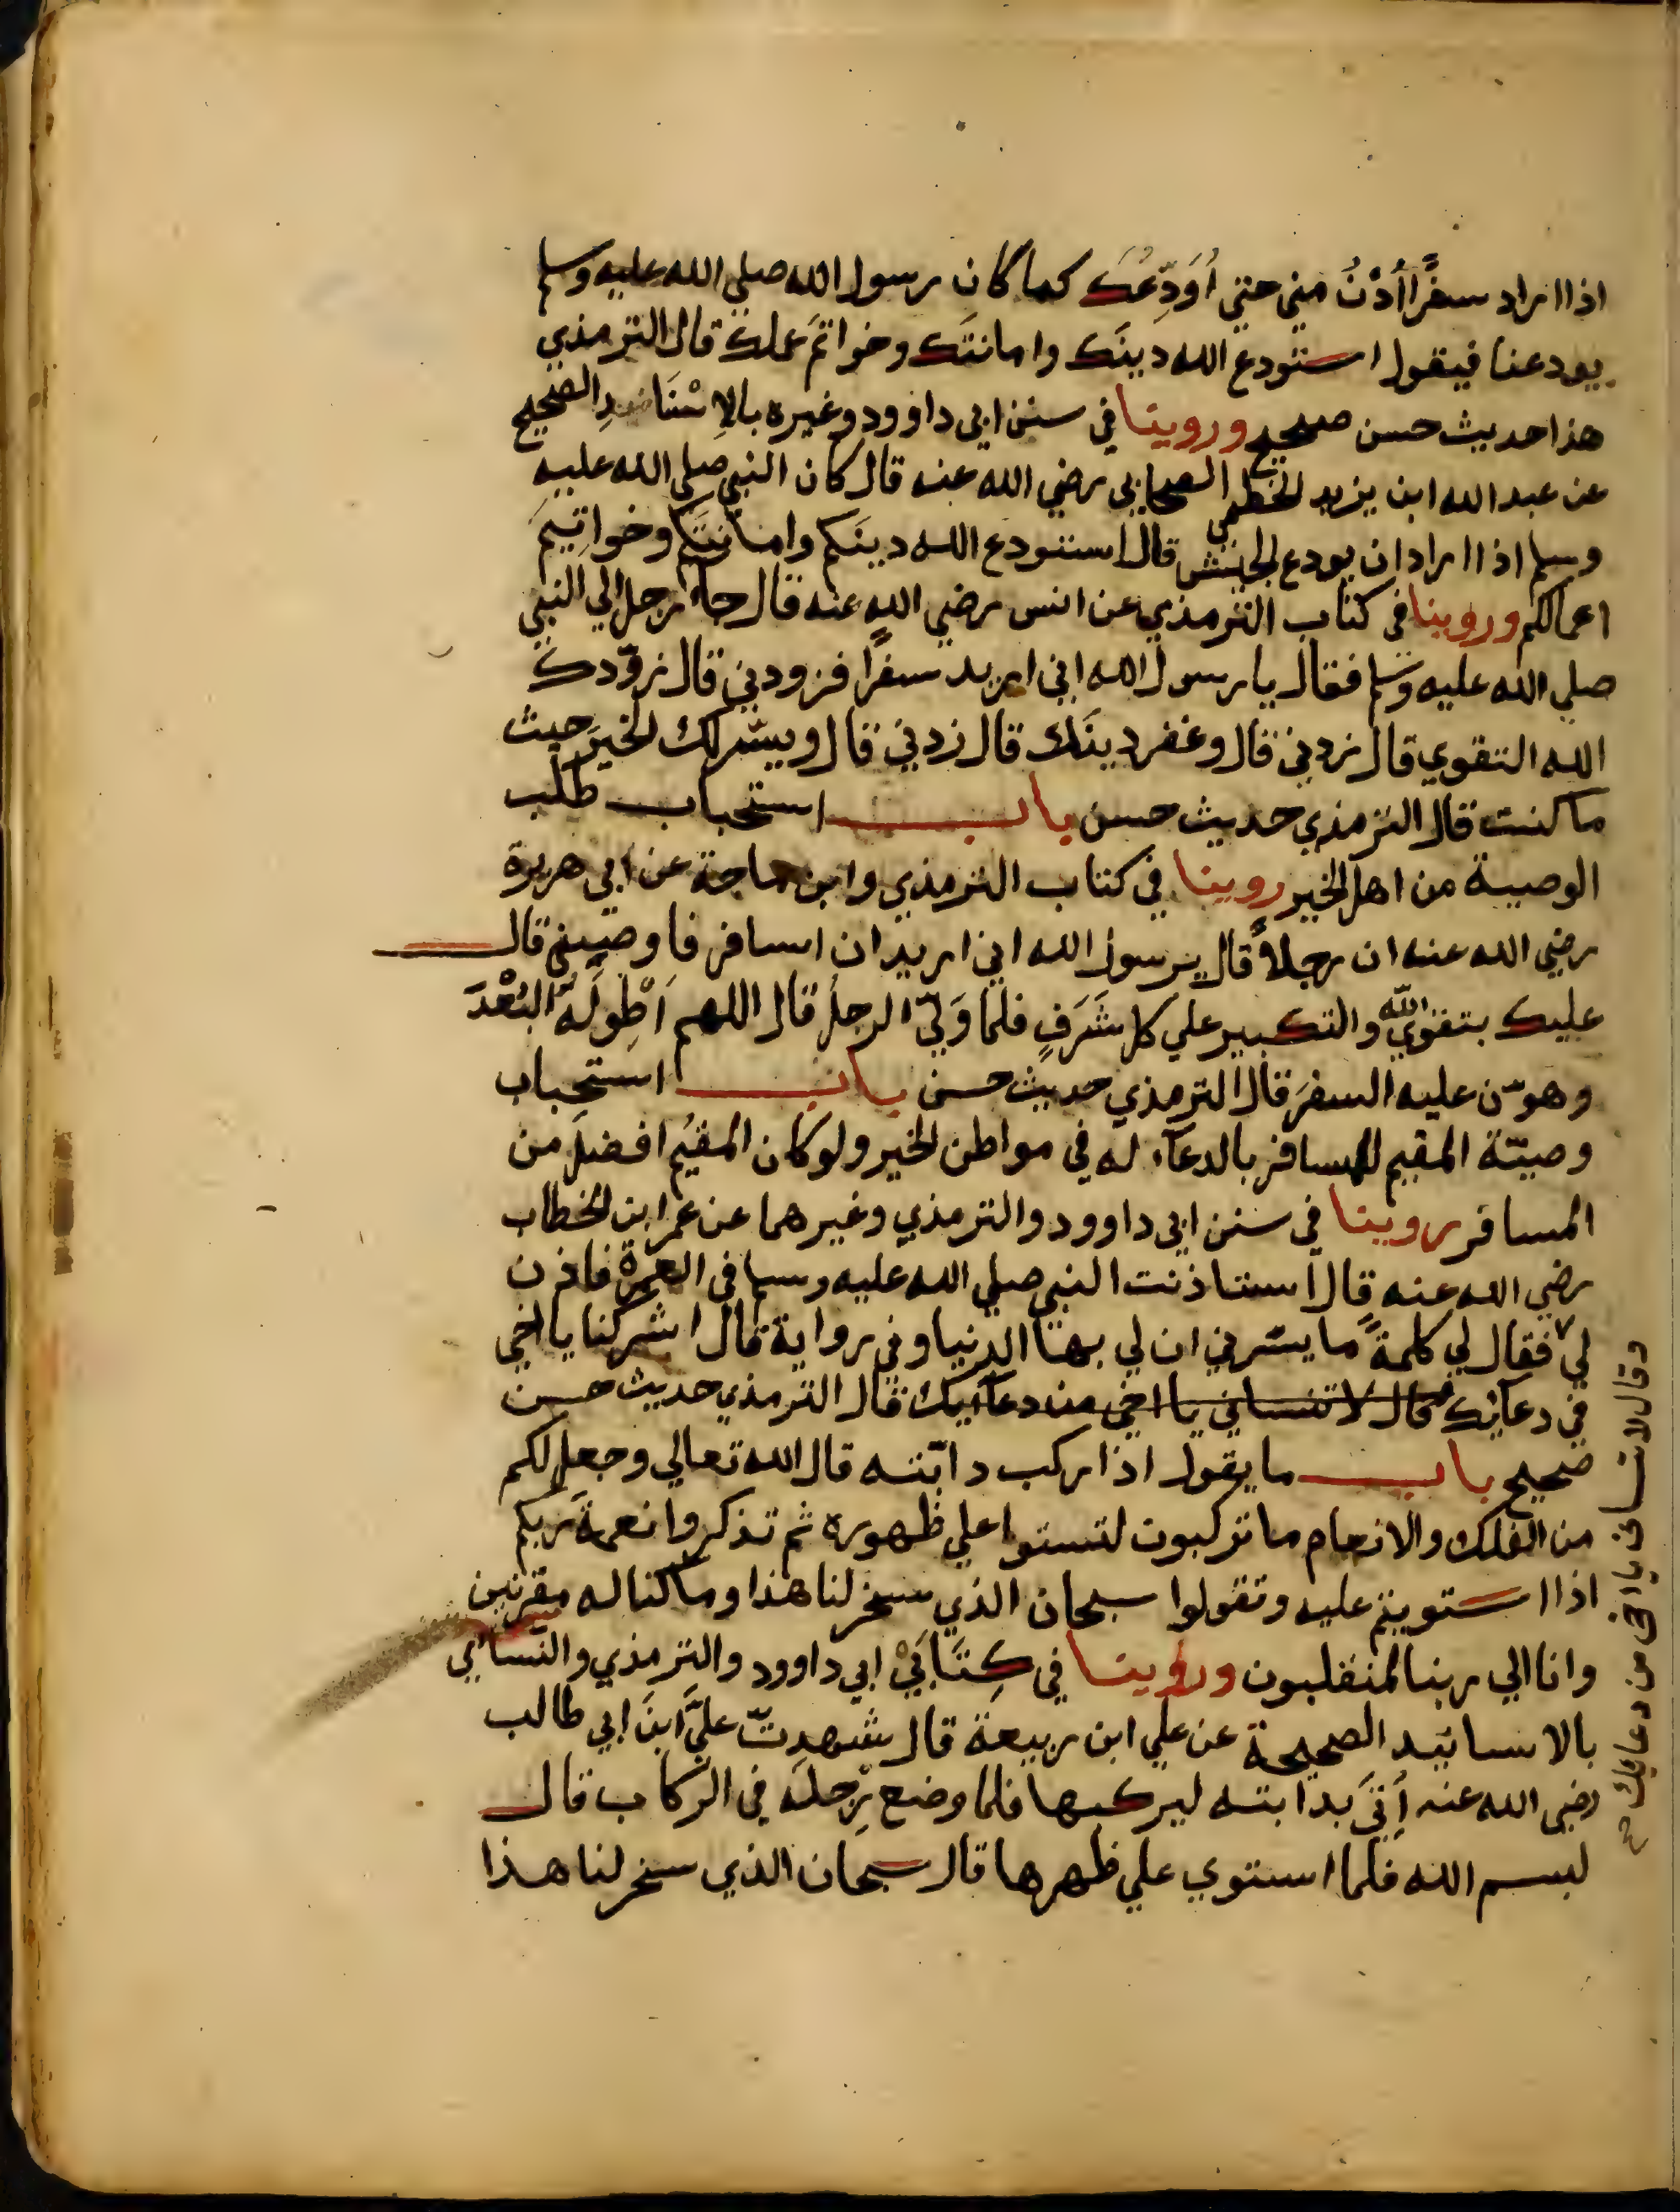 اذا اراد سفرًا أُدْنُ مني حتي اُوَدِّعُكَ كما كان رسول الله صلي الله عليه وسلم
يودعنا فيقول استودع الله دينَك وامانتَك وخواتمَ عملك قال الترمذي
هذا حديث حسن صحيح وروينا في سنن ابي داوود وغيره بالاِسْنَادِ الصحيح
عن عبد الله ابن يزيد الخطمي الصحابي رضي الله عنه قال كان النبي صلي الله عليه
وسلم اذا اراد ان يودع الجيش قال استودع الله دينَكم وامانتَكم وخواتِيمَ
اعمالكم وروينا في كتاب الترمذي عن انس رضي الله عنه قال جاء رجل الي النبي
صلي الله عليه وسلم فقال يا رسول الله اني اريد سفرًا فزودني قال زوّدك
الله التقوي قال زدني قال وغفر دينَك قال زدني قال ويسّر لك الخيرَ حيث
ما كنت قال الترمذي حديث حسن باب استحباب طلب
الوصية من اهل الخير روينا في كتاب الترمذي وابن ماجة عن ابي هريرة
رضي الله عنه ان رجلاً قال يرسول الله اني اريد ان اسافر فاوصيني قال
عليك بتقوي الله والتكبير علي كل شَرَفٍ فلما وَلّيَ الرجلُ قال اللهم اَطْوِ لَهُ البُعْدَ
وهوّن عليه السفرَ قال الترمذي حديث حسن باب استحباب
وصيّة المقيم للمسافر بالدعآء له في مواطن الخير ولو كان المقيمُ افضلَ من
المسافر روينا في سنن ابي داوود والترمذي وغيرهما عن عمر ابن الخطاب
رضي الله عنه قال استاذنت النبي صلي الله عليه وسلم في العمرة فاذن
لي فقال لي كلمةً ما يسّرني ان لي بها الدنيا وفي رواية قال اشركنا يا اخي
في دعائك قال لا تنساني يا اخي من دعآئيك قال الترمذي حديث حسن
صحيح باب ما يقول اذا ركب دابّته قال الله تعالي وجعل لكم
من الفلك والانعام ما تركبون لتستوا علي ظهوره ثم تذكروا نعمةَ ربكم
اذا استويتم عليه وتقولوا سبحان الذي سخر لنا هذا وما كنا له مقرنين
وانا الي ربنا لمنقلبون وروينا في كِتَابَيْ ابي داوود والترمذي والنسائي
بالاسانيد الصحيحة عن علي ابن ربيعة قال شهدتّ عليَّ ابنَ ابي طالب
رضي الله عنه أُتيَ بدابته ليركبها فلما وضع رِجلَه في الرِّكاب قال
لبسم الله فلما استوي علي ظهرها قال سبحان الذي سخر لنا هذا
وقال لا تنساني يا اخي من دعايك